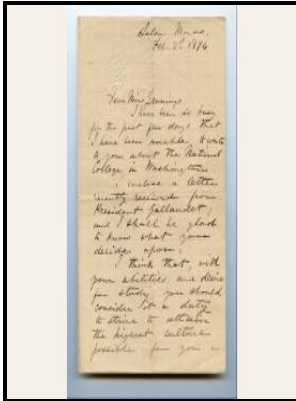 Salem Mass.
Feb. 8th 1894
Dear Miss Jennings
I have been so busy
for the past few days that
I have been unable to write
to you about the National
College in Washington.
I inclose a letter
recently received from
President Gallaudet,
and I shall be glad
to know what you
decide upon.
I think that, with
your abilities, and desire
for study, you should
consider it a duty
to strive to attain
the highest culture
possible for you